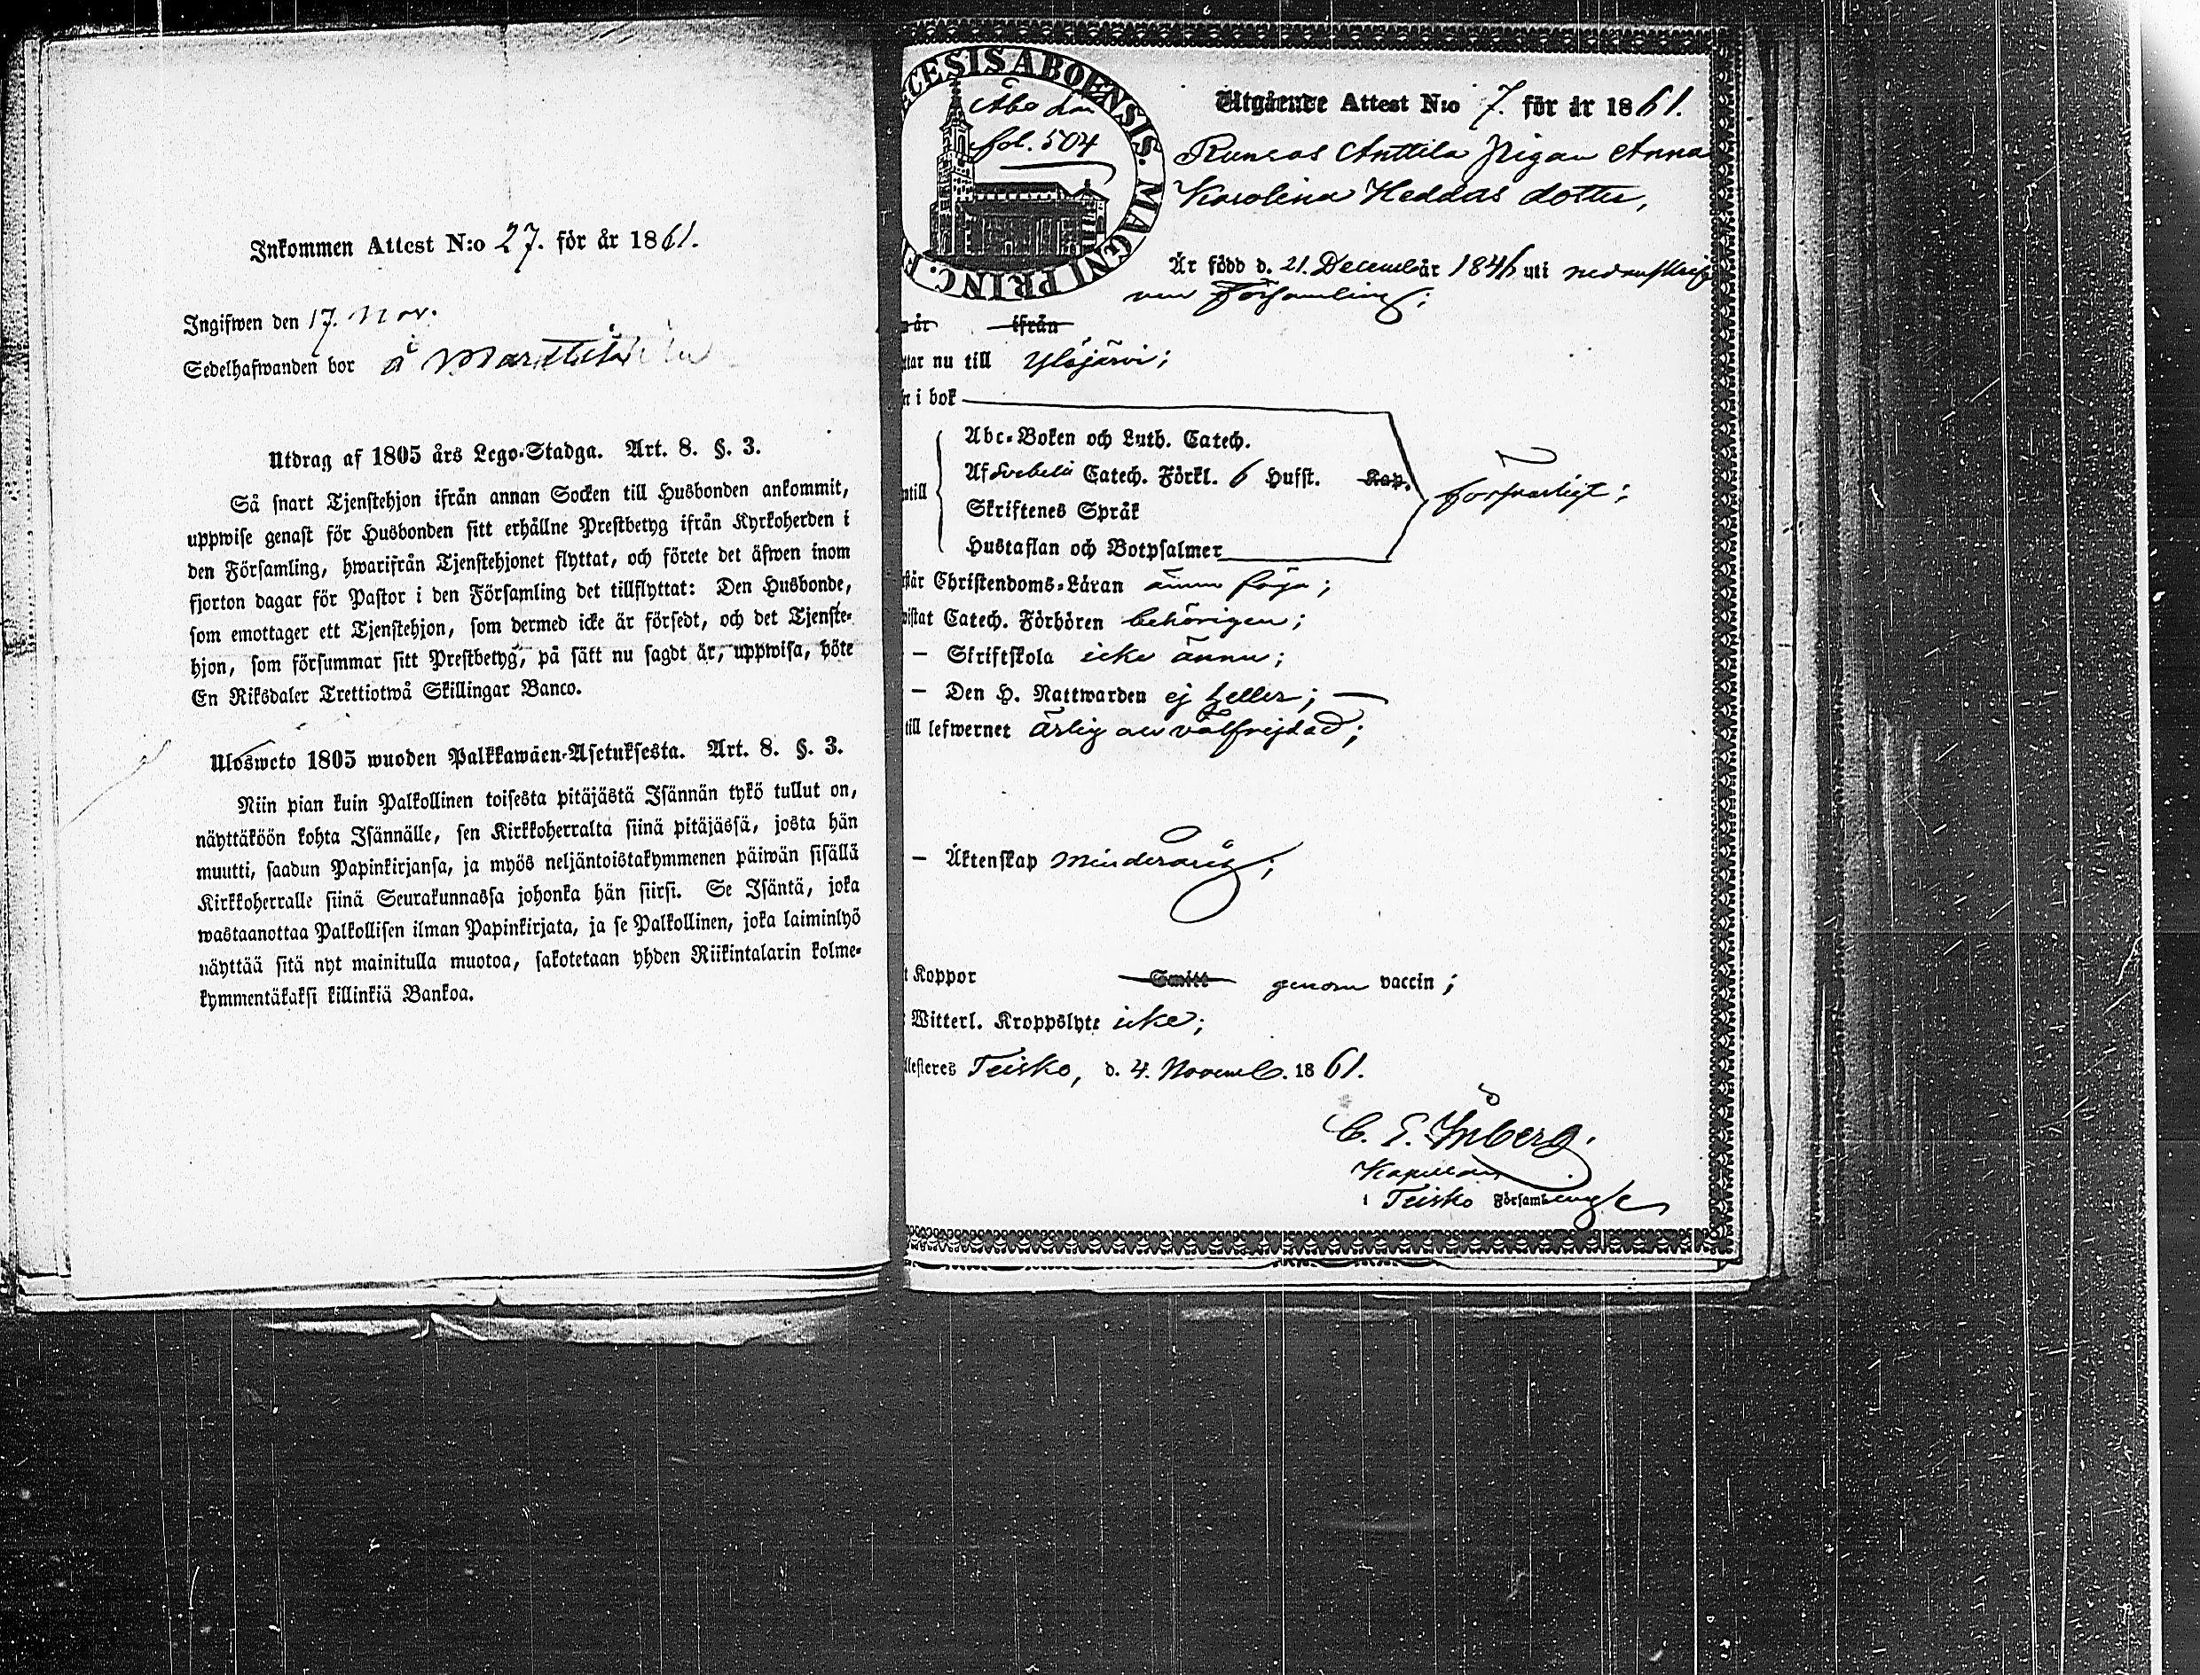 Inkommen Attest N:o 27. för år 1861.
Ingifwen den 17. Nov.
Sedelhafwanden bor å Marttila
Utdrag af 1805 års Lego-Stadga. Art. 8. §. 3.
Så snart Tjenstehjon ifrån annan Socken till Husbonden ankommit,
uppwise genast för Husbonden sitt erhållne Prestbetyg ifrån Kyrkoherden i
den Församling, hwarifrån Tjenstehjonet flyttat, och förete det äfwen inom
fjorton dagar för Pastor i den Församling det tillflyttat: Den Husbonde,
som emottager ett Tjenstehjon, som dermed icke är försedt, och det Tjenste-
hjon, som försummar sitt Prestbetyg, på sätt nu sagdt är, uppwisa, böte
En Riksdaler Trettiotwå Skillingar Banco.
Ulosweto 1805 wuoden Palkkawäen-Asetuksesta. Art. 8. §. 3.
Niin pian kuin Palkollinen toisesta pitäjästä Isännän tykö tullut on,
näyttäköön kohta Isännälle, sen Kirkkoherralta siinä pitäjässä, josta hän
muutti, saadun Papinkirjansa, ja myös neljäntoistakymmenen päiwän sisällä
Kirkkoherralle siinä Seurakunnassa johonka hän siirsi. Se Isäntä, joka
wastaanottaa Palkollisen ilman Papinkirjata, ja se Palkollinen, joka laiminlyö
näyttää sitä nyt mainitulla muotoa, sakotetaan yhden Riikintalarin kolme-
kymmentäkaksi killinkiä Bankoa.
CESIS ABOENSIS. MAGNI PRINC. F
Åbo län
fol. 504
Utgående Attest N:o 7. för år 1861.
Runsas Anttila Pigan Anna
Karolina Heddas dotter,
Är född d. 21. December 1846 uti nedanskrif
ven församling;
når ifrån
ttar nu till Ylöjärvi;
n i bok
Abc-Boken och Luth. Catech.
Af Svebelii Catech. Förkl. 6 Hufst. Kap.
ntill
försvarligt;
Skriftenes Språk
Hustaflan och Botpsalmer
står Christendoms-Läran ännu föga;
vistat Catech. Förhören behörigen;
— Skriftskola icke ännu;
— Den H. Nattwarden ej heller;
till lefwernet ärlig och välfrejdad;
— Äktenskap Minderårig;
t Koppor Smitt genom vaccin;
Witterl. Kroppslyte icke;
llesteres Teisko, d. 4. Novemb. 1861.
Kapellan
i Teisko Församling